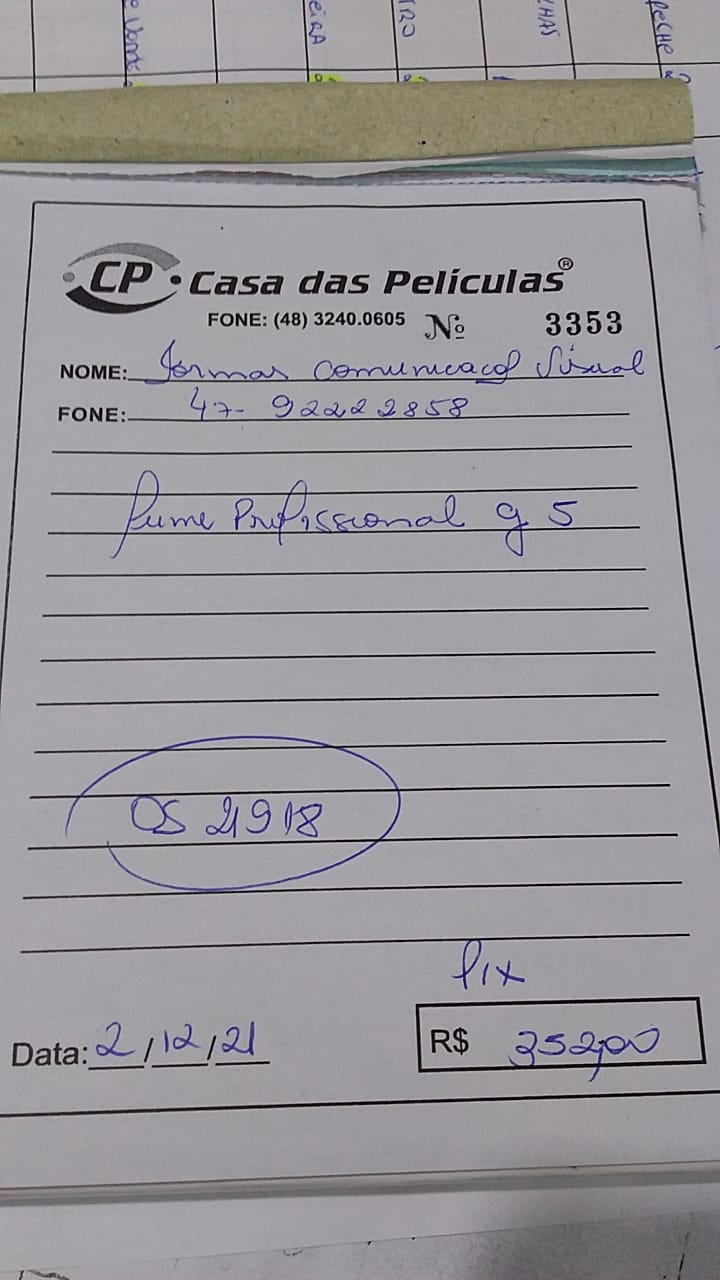 CP Casa das Películas®
FONE: (48) 3240.0605 Nº 3353
NOME: Formas Comunicaçao Visual
FONE: 47- 92222858
fume Profissional g 5
OS 21918
Pix
R$ 352,00
Data: 2/12/21